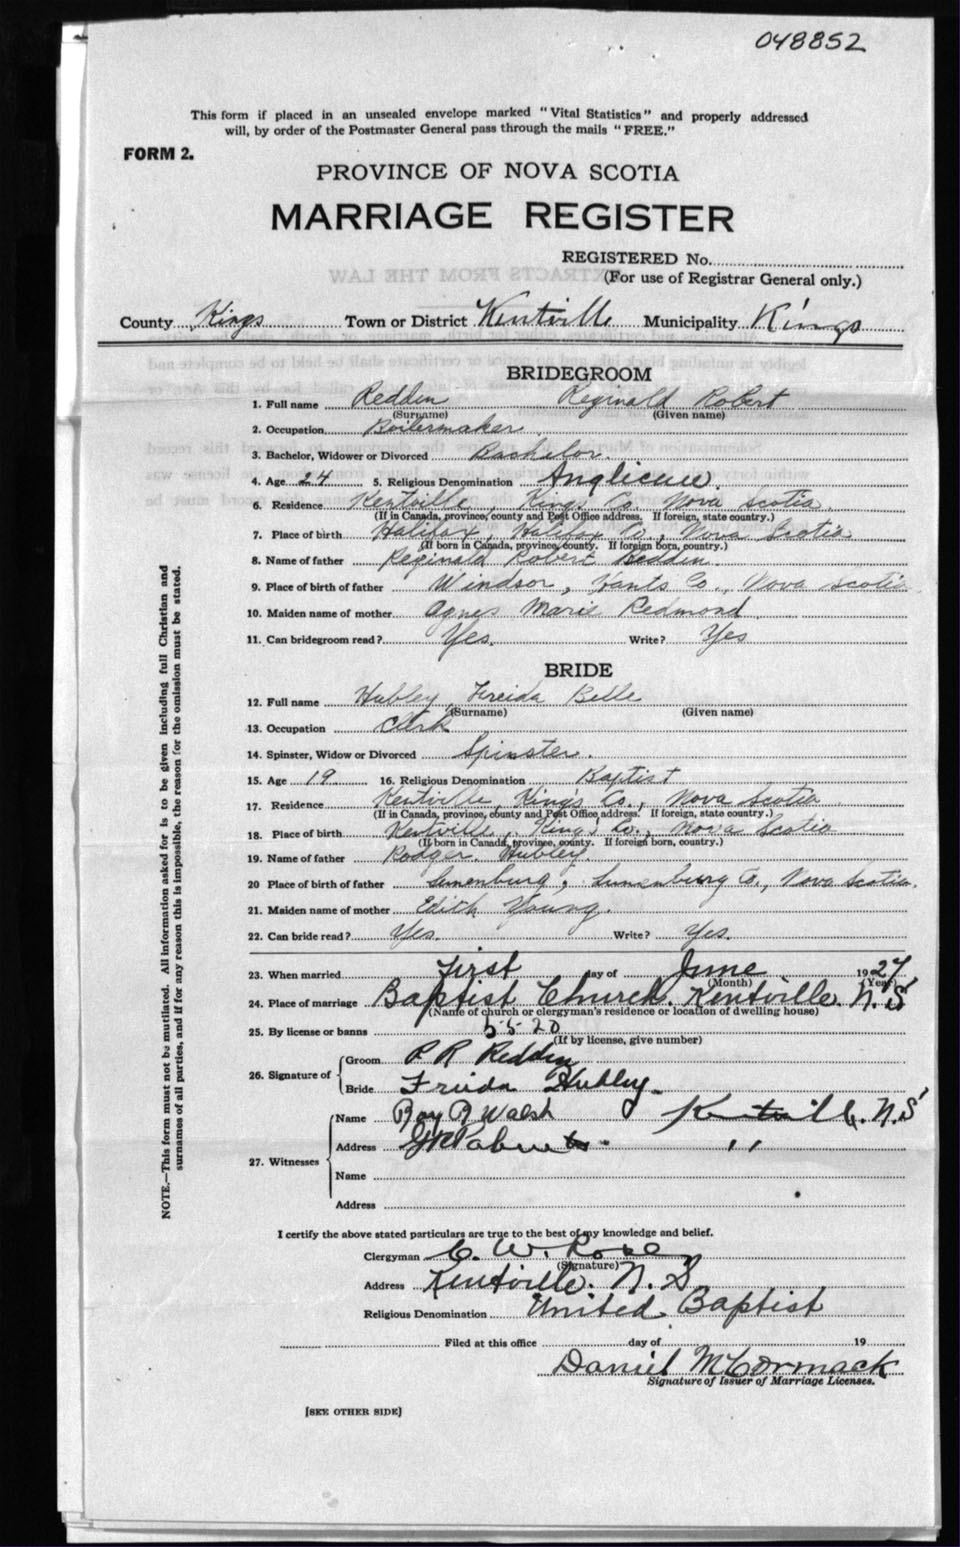 048852
This form if placed in an unsealed envelope marked "Vital Statistics" and properly addressed
will, by order of the Postmaster General pass through the mails "FREE."
FORM 2.
PROVINCE OF NOVA SCOTIA
MARRIAGE REGISTER
REGISTERED No.
(For use of Registrar General only.)
County Kings Town or District Kentville Municipality Kings
BRIDEGROOM
1. Full name Redden Reginald Robert
(Surname) (Given name)
2. Occupation Boilermaker
3. Bachelor, Widower or Divorced Bachelor.
4. Age 24 5. Religious Denomination Anglican
6. Residence Kentville, Kings Co. Nova Scotia
(If in Canada, province, county and Post Office address. If foreign, state country.)
7. Place of birth Halifax, Halifax Co., Nova Scotia
(If born in Canada, province, county. If foreign born, country.)
8. Name of father Reginald Robert Redden
9. Place of birth of father Windsor, Hants Co., Nova Scotia
10. Maiden name of mother Agnes Marie Redmond
11. Can bridegroom read? Yes. Write? Yes
BRIDE
12. Full name Hubley, Freida Belle
(Surname) (Given name)
13. Occupation Clerk
14. Spinster, Widow or Divorced Spinster.
15. Age 19 16. Religious Denomination Baptist
17. Residence Kentville, King's Co., Nova Scotia
(If in Canada, province, county and Post Office address. If foreign, state country.)
18. Place of birth Kentville, King's Co., Nova Scotia
(If born in Canada, province, county. If foreign born, country.)
19. Name of father Rodger Hubley
20 Place of birth of father Lunenburg, Lunenburg Co., Nova Scotia.
21. Maiden name of mother Edith Young.
22. Can bride read? Yes. Write? Yes.
23. When married First day of June 1927
(Month) (Year)
24. Place of marriage Baptist Church. Kentville. N.S
(Name of church or clergyman's residence or location of dwelling house)
25. By license or banns 5520
(If by license, give number)
26. Signature of Groom R R Redden
Bride Frieda Hubley
27. Witnesses Name Roy B Walsh Kentville. N.S
Address " "
Name
Address
I certify the above stated particulars are true to the best of my knowledge and belief.
Clergyman C. W. Rose
(Signature)
Address Kentville. N.S
Religious Denomination United Baptist
Filed at this office day of 19
Daniel McCormack
Signature of Issuer of Marriage Licenses.
[SEE OTHER SIDE]
NOTE.—This form must not be mutilated. All information asked for is to be given including full Christian and
surnames of all parties, and if for any reason this is impossible, the reason for the omission must be stated.